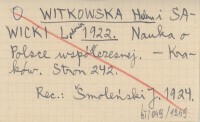 O WITKOWSKA Helena i SA-
WICKI L. 1922. Nauka o
Polsce współczesnej. – Kra-
ków. Stron 242.
Rec.: Smoleński J. 1924.